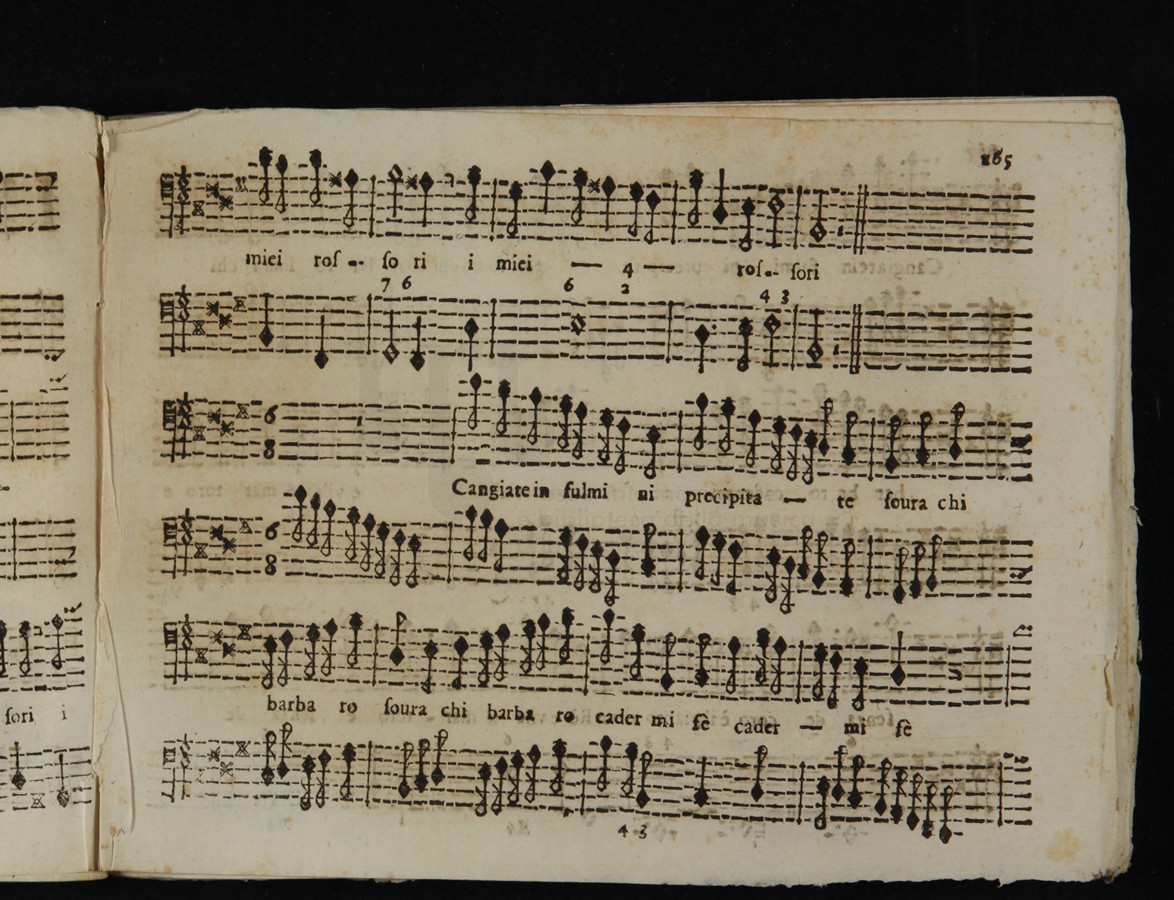 185
miei ros -- so ri i miei — 4 — ros-- sori
7 6 6 2 4 3
6
8
Cangiate in fulmi ni precipita — te soura chi
6
8
barba ro soura chi barba ro cader mi fè cader — mi fè
sori i
4 3